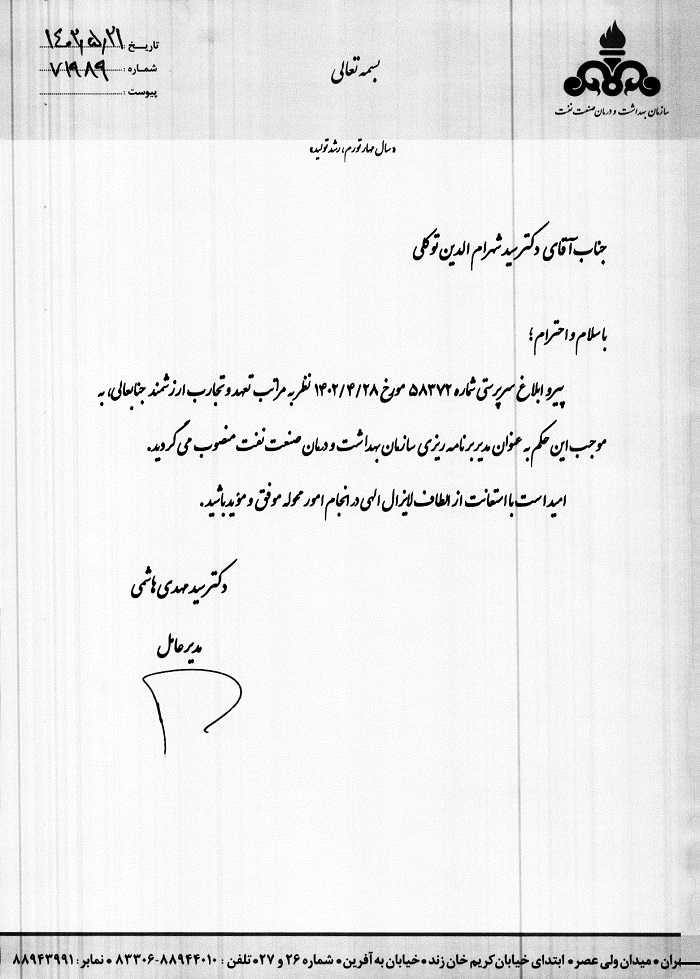 بسمه تعالی
تاریخ: ۱۴۰۲٫۵٫۲۱
شماره: ۷۱۹۸۹
پیوست:
سازمان بهداشت و درمان صنعت نفت
«سال مهار تورم، رشد تولید»
جناب آقای دکتر سید شهرام الدین توکلی
با سلام و احترام؛
پیرو ابلاغ سرپرستی شماره ۵۸۳۷۲ مورخ ۱۴۰۲/۴/۲۸ نظر به مراتب تعهد و تجارب ارزشمند جنابعالی، به
موجب این حکم به عنوان مدیر برنامه ریزی سازمان بهداشت و درمان صنعت نفت منصوب می گردید.
امید است با استعانت از الطاف لایزال الهی در انجام امور محوله موفق و مؤید باشید.
دکتر سید مهدی هاشمی
مدیر عامل
ـران • میدان ولی عصر • ابتدای خیابان کریم خان زند • خیابان به آفرین • شماره ۲۶ و ۲۷ • تلفن : ۸۸۹۴۴۰۱۰-۸۳۳۰۶ • نمابر: ۸۸۹۴۳۹۹۱